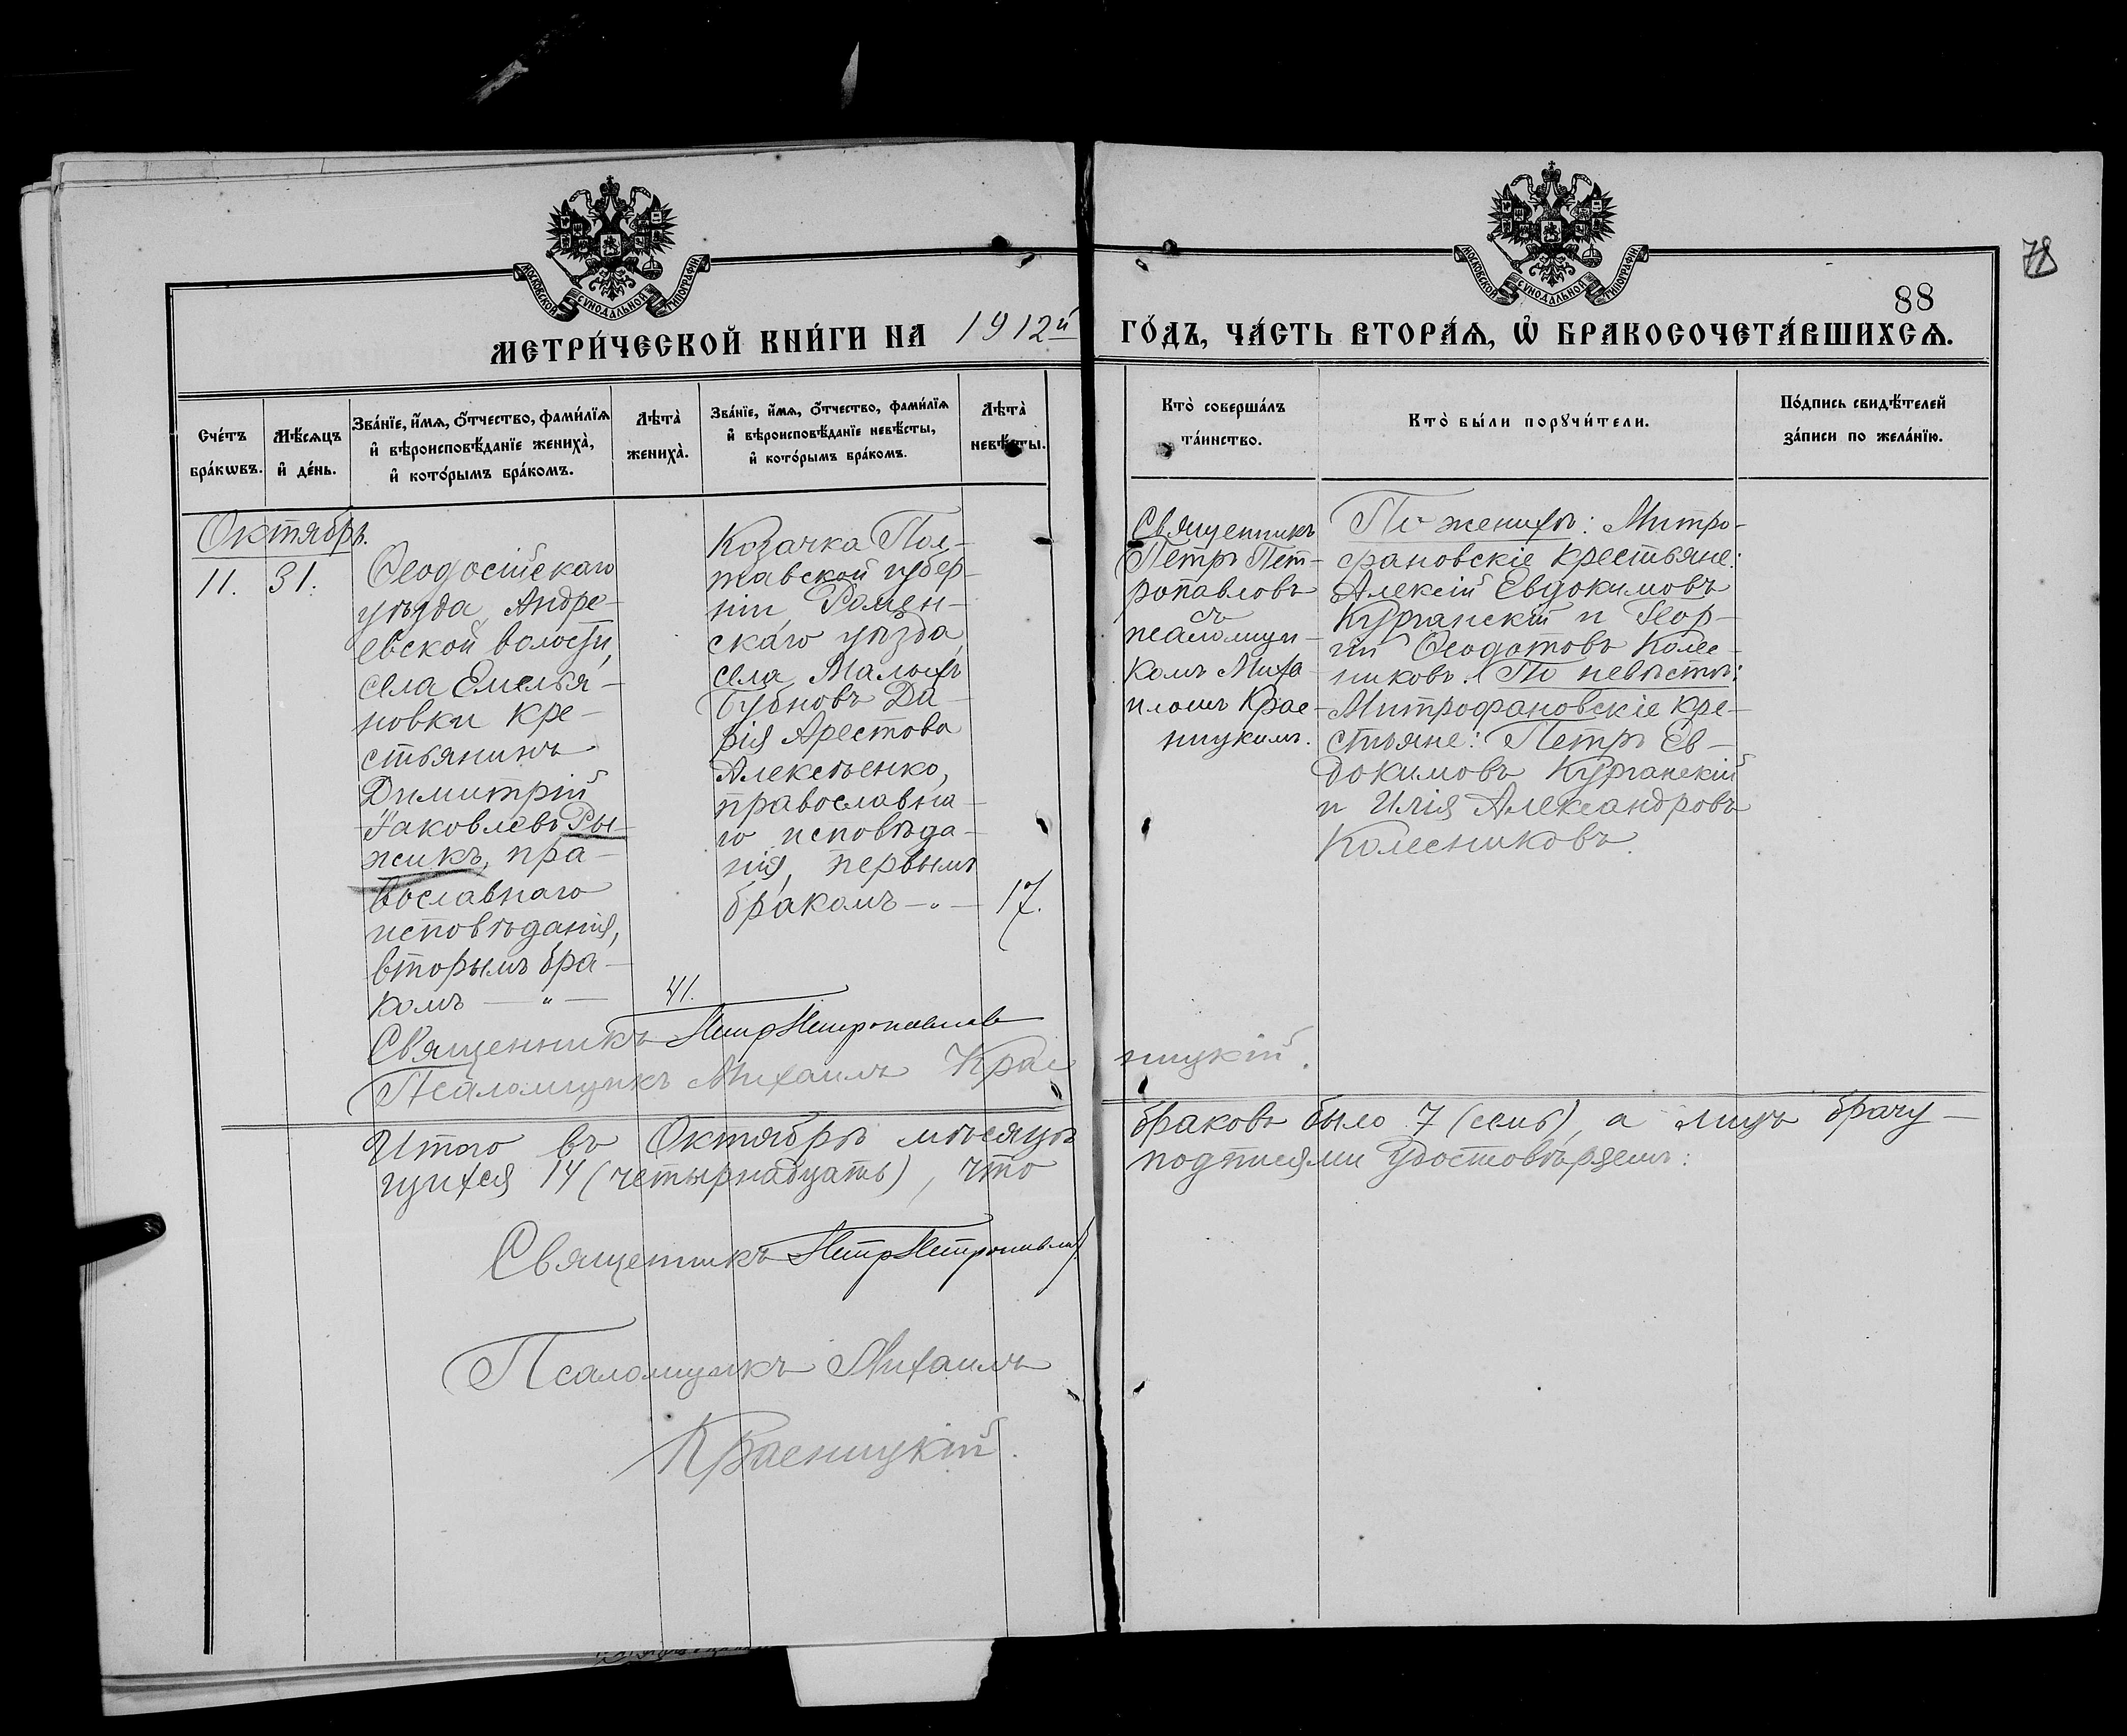 МОСКОВСКОЙ СѴНОДАЛЬНОЙ ТИПОГРАФІИ
МОСКОВСКОЙ СѴНОДАЛЬНОЙ ТИПОГРАФІИ
88
МЕТРИ́ЧЕСКОЙ КНИ́ГИ НА 1912й ГО́ДЪ, ЧА́СТЬ ВТОРА́Ѧ, Ѡ҆ БРАКОСОЧЕТА́ВШИХСѦ.
Сче́тъ бра́кѡвъ.
Мѣ́сѧцъ и҆ де́нь.
Зва́нїе, и҆́мѧ, ѻ҆́тчество, фами́лїѧ и҆ вѣроисповѣ́данїе жениха̀, и҆ кото́рымъ бра́комъ.
Лѣта̀ жениха̀.
Зва́нїе, и҆́мѧ, ѻ҆́тчество, фами́лїѧ и҆ вѣроисповѣ́данїе невѣ́сты, и҆ кото́рымъ бра́комъ.
Лѣта̀ невѣ́сты.
Кто̀ соверша́лъ та́инство.
Кто̀ бы́ли порꙋчи́тели.
По́дпись свидѣ́телей за́писи по жела́нїю.
Октябрь.
11. 31.
Ѳеодосійскаго
уѣзда, Андре-
евской волости,
села Емелья-
новки кре-
стьянинъ
Димитрій
Іаковлевъ Ры-
жикъ, пра-
вославнаго
исповѣданія,
вторымъ бра-
комъ — " —
41.
Козачка Пол-
тавской губер-
ніи Ромен-
скаго уѣзда,
села Малыхъ
Бубновъ Да-
рія Арестова
Алексѣенко,
православна-
го исповѣда-
нія, первымъ
бракомъ — " — 17.
Священникъ
Петръ Пет-
ропавловъ
съ
псаломщи-
комъ Миха-
иломъ Крас-
ницкимъ.
По женихѣ: Митро-
фановскіе крестьяне:
Алексій Евдокимовъ
Курганскій и Геор-
гій Ѳеодотовъ Колес-
никовъ. По невѣстѣ:
Митрофановскіе кре-
стьяне: Петръ Ев-
докимовъ Курганскій
и Илія Александровъ
Колесниковъ.
Священникъ Петръ Петропавловъ
Псаломщикъ Михаилъ Красницкій.
Итого въ Октябрѣ мѣсяцѣ браковъ было 7 (семь), а лицъ брачу-
щихся 14 (четырнадцать), что подписями удостовѣряемъ:
Священникъ Петръ Петропавловъ
Псаломщикъ Михаилъ
Красницкій.